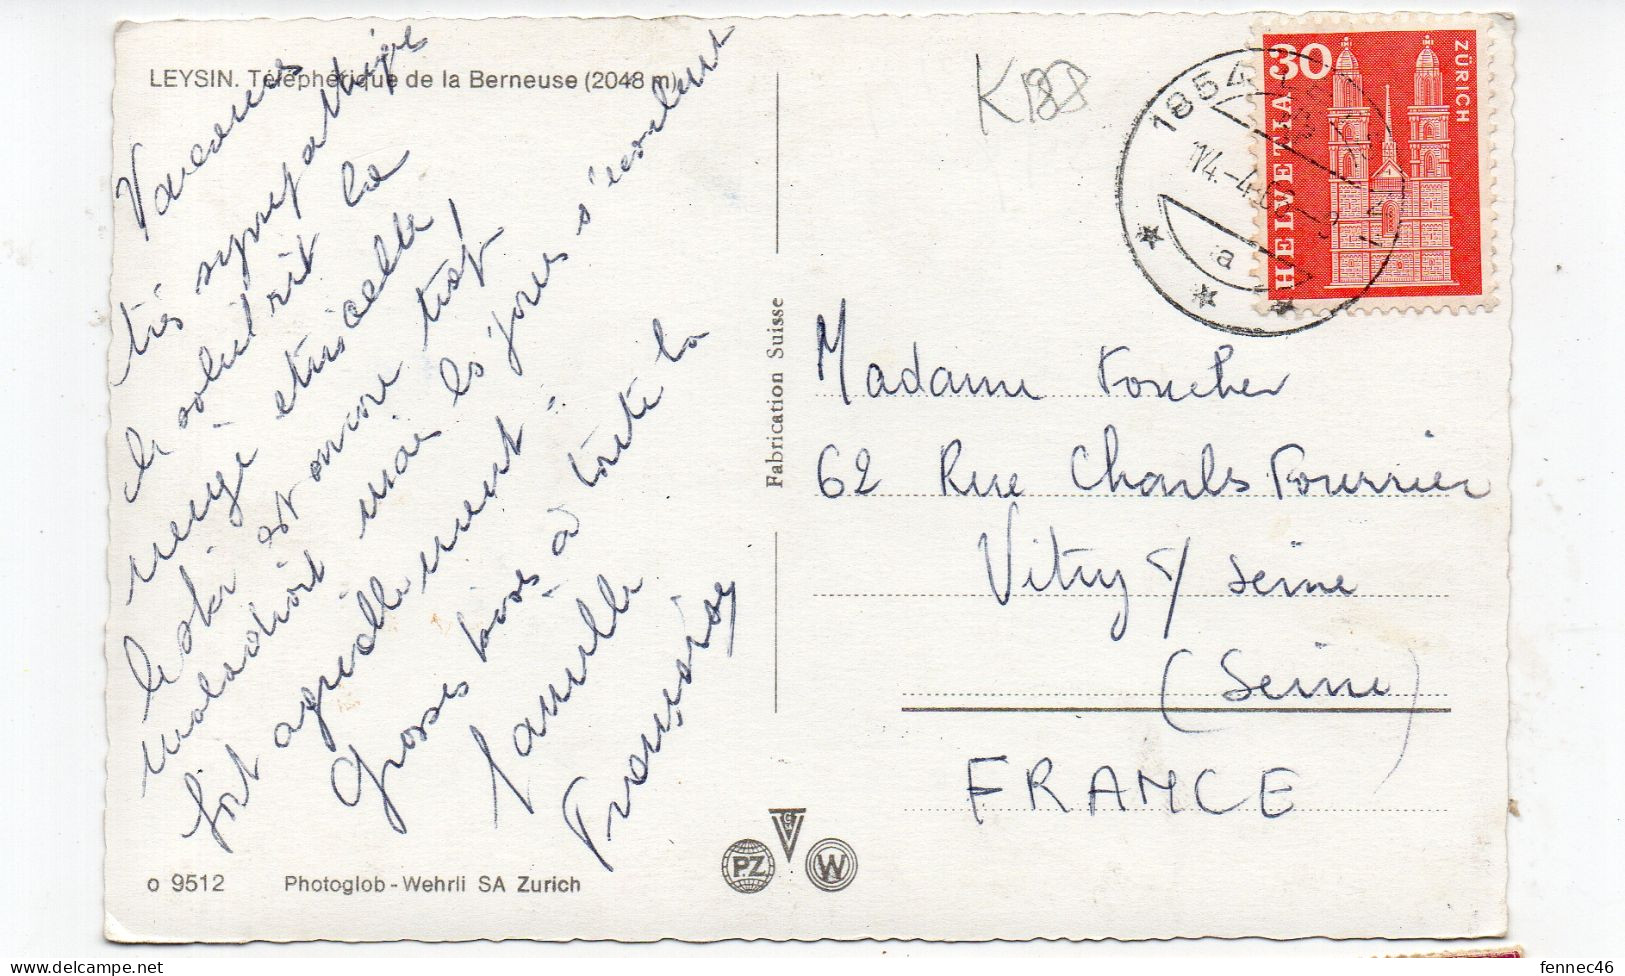 LEYSIN. Téléphérique de la Berneuse (2048 m)
Vacances
très sympathique
le soleil rit la
neige étincelle,
le ski est encore trop
maladroit mais les jours s'écoulent
fort agréablement.
Grosses bises à toute la
famille
Françoise
o 9512
Photoglob-Wehrli SA Zurich
Fabrication Suisse
PZ
W
K188
1854
14.-4.6
a
30
HELVETIA
ZÜRICH
Madame Foucher
62 Rue Charles Fourrier
Vitry s/ Seine
(Seine)
FRANCE
fennec46